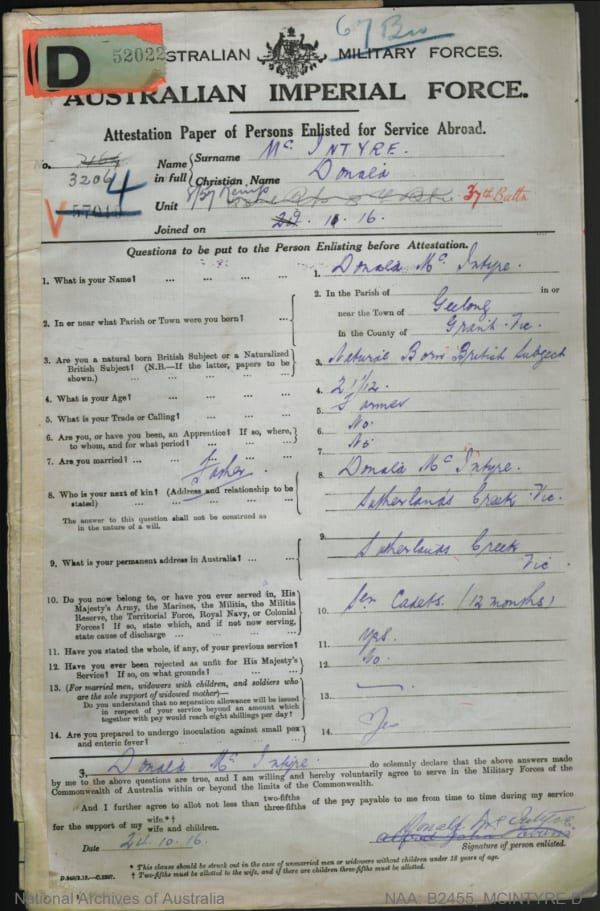 67 Bn
D 52022
AUSTRALIAN MILITARY FORCES.
AUSTRALIAN IMPERIAL FORCE.
Attestation Paper of Persons Enlisted for Service Abroad.
No. 3206 4
V 57015
Name in full
Surname Mc INTYRE.
Christian Name Donald
Unit 8/37 Reinfs 37th Battn
Joined on 10. 16.
Questions to be put to the Person Enlisting before Attestation.
1. What is your Name? ... ... ... ... 1. Donald Mc Intyre.
2. In or near what Parish or Town were you born? ...
2. In the Parish of in or
near the Town of Geelong
in the County of Grant. Vic.
3. Are you a natural born British Subject or a Naturalized
British Subject? (N.B.—If the latter, papers to be
shown.) ... ... ... ...
3. Natural Born British Subject
4. What is your Age? ... ... ... ... 4. 21 1/12.
5. What is your Trade or Calling? ... ... ... 5. Farmer
6. Are you, or have you been, an Apprentice? If so, where,
to whom, and for what period? ... ... ...
6. No.
7. Are you married? ... ... ... ... 7. No.
8. Who is your next of kin? (Address and relationship to be
stated) ... ... ... ...
The answer to this question shall not be construed as
in the nature of a will.
Father.
8. Donald Mc Intyre.
Sutherlands Creek. Vic.
9. What is your permanent address in Australia? ... ...
9. Sutherlands Creek
Vic.
10. Do you now belong to, or have you ever served in, His
Majesty's Army, the Marines, the Militia, the Militia
Reserve, the Territorial Force, Royal Navy, or Colonial
Forces? If so, state which, and if not now serving,
state cause of discharge ... ... ...
10. Sen Cadets. (12 months)
11. Have you stated the whole, if any, of your previous service? 11. Yes.
12. Have you ever been rejected as unfit for His Majesty's
Service? If so, on what grounds? ... ...
12. No.
13. (For married men, widowers with children, and soldiers who
are the sole support of widowed mother)—
Do you understand that no separation allowance will be issued
in respect of your service beyond an amount which
together with pay would reach eight shillings per day?
13. —
14. Are you prepared to undergo inoculation against small pox
and enteric fever? ... ... ... ...
14. Yes
I, Donald Mc Intyre. do solemnly declare that the above answers made
by me to the above questions are true, and I am willing and hereby voluntarily agree to serve in the Military Forces of the
Commonwealth of Australia within or beyond the limits of the Commonwealth.
And I further agree to allot not less than two-fifths three-fifths of the pay payable to me from time to time during my service
for the support of my wife.*†
wife and children.
Date 24.10.16. Donald Mc Intyre
Signature of person enlisted.
* This clause should be struck out in the case of unmarried men or widowers without children under 18 years of age.
† Two-fifths must be allotted to the wife, and if there are children three-fifths must be allotted.
National Archives of Australia NAA: B2455, MCINTYRE D